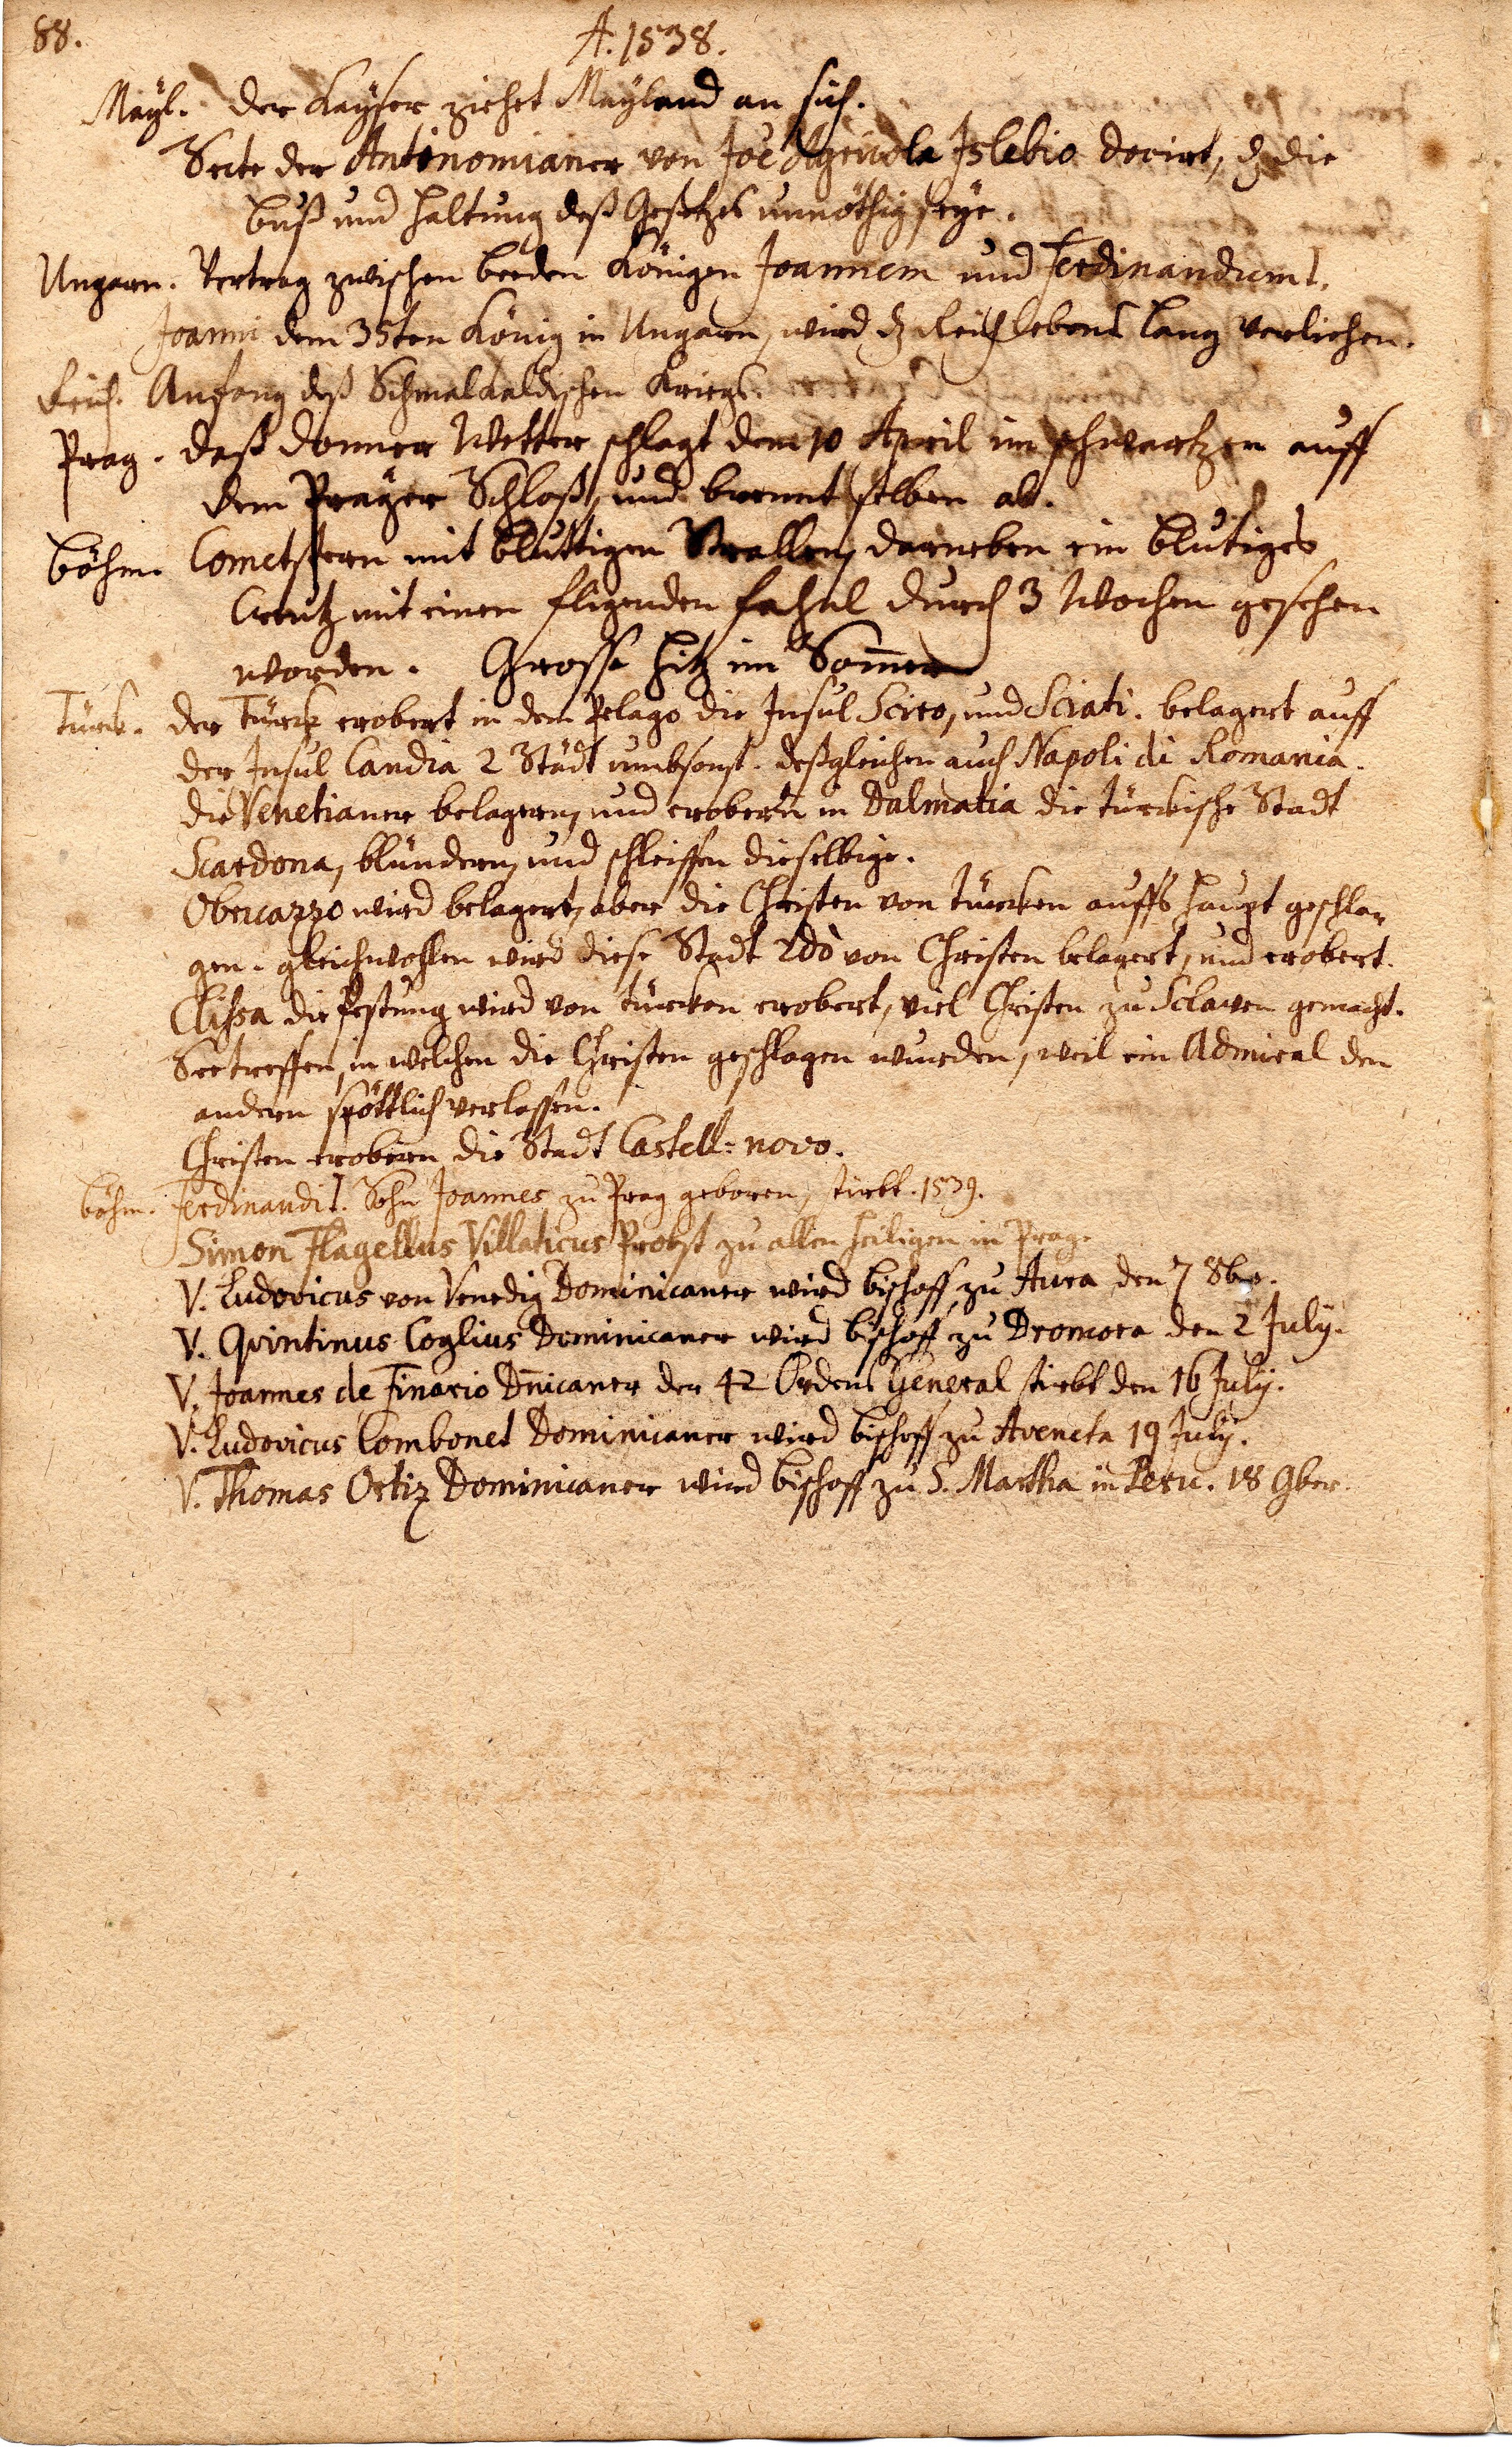 88.
A. 1538.
Mayl. der Kayser ziehet Mayland an sich.
Secte der Antinomianer von Joe Agricola Islebio docirt, dz die
buß und haltung deß Gesetzes unnöthig seye.
Ungarn. Vertrag zwischen beeden Königen Joannem und Ferdinandum I.
Joanni dem 35ten König in Ungarn, wird dz Reich lebens lang verliehen.
Reich. Anfang deß Schmalkaldischen Kriegs.
Prag. daß donner Wetter schlagt dem 10 April im schwartzen auff
dem Prager Schloß, und brennt selben ab.
böhm. Cometstern mit bluttigen Strallen, darneben ein blutiges
Creutz mit einen fligenden fahnl durch 3 Wochen gesehen
worden. Grosse hitz im Som̄er
Türck. der Türck erobert in dem Pelago die Insul Sciro, und Sciati. belagert auff
der Insul Candia 2 Städt umbsonst. deßgleichen auch Napoli di Romania.
die Venetianer belagern, und erobern in Dalmatia die türckische Stadt
Scardona, blündern, und schleiffen dieselbige.
Obrcazzo wird belagert, aber die Christen von türcken auffs haupt geschla-
gen. gleichwohlen wird diese Stadt 2dò von Christen belagert, und erobert.
Clissa die festung wird von türcken erobert, viel Christen zu Sclaven gemacht.
Seetreffen, in welchen die Christen geschlagen wurden, weil ein Admiral den
andern spöttlich verlassen.
Christen erobern die Stadt Castell-novo.
böhm. Ferdinandi I. Sohn Joannes zu Prag geboren, stirbt. 1539.
Simon Flagellus Villaticus Probst zu allen heiligen in Prag.
V. Ludovicus von Venedig Dominicaner wird bischoff zu Aura den 7 8bro.
V. Qvintinus Coglius Dominicaner wird bischoff zu Dromora den 2 July.
V. Joannes de Finario Dn̄icaner der 42 Ordens General stirbt den 16 July.
V. Ludovicus Combonet Dominicaner wird bischoff zu Aveneta 19 July.
V. Thomas Ortiz Dominicaner wird bischoff zu S. Martha in Peru. 18 9ber.